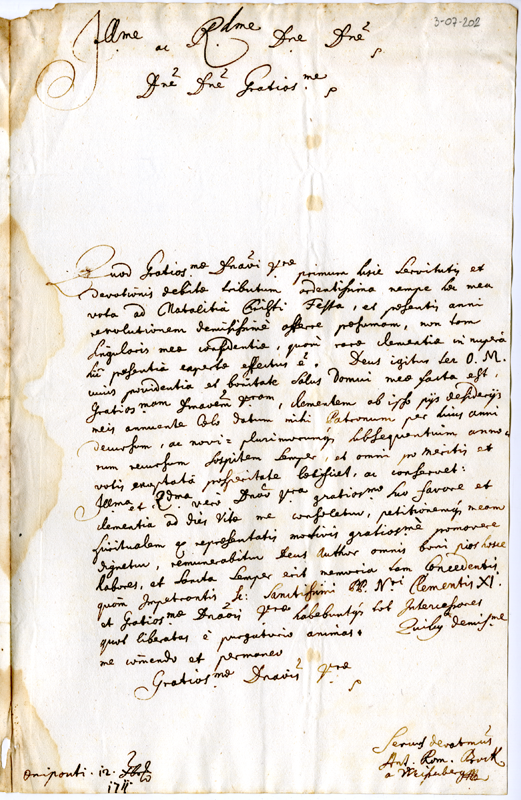 3-07-202
Illme ac Rdme Dne Dne
Dne Dne Gratiosme
Quod Gratiosme Dnaōi Vrae primum hic Servitutis et
devotionis debitae tributum ardentissima nempe haec mea
vota ad Natalitia Christi Festa, et praesentis anni
revolutionem demississimè offerre praesumam, non tam
singularis mea confidentia, quàm rara clementia in nuperâ
praesentia experta effectus ē. Deus igitur ter O. M.
cuius providentia et bonitate Salus Domui mea facta est,
Gratiosmam Dnaōem Vram, clementem ab ipso pijs desiderijs
meis annuente Coelo datum mihi Patronum, per huius anni
decursum, ac novi plurimorumq subsequentium anno-
rum recursum sospitem semper, et omni pro meritis et
votis exoptatâ prosperitate ac conservet:
Illma et Rdma verò Dnaō Vra gratiosmo suo favore et
clementia ad dies vitae me consoletur, petitionemq meam
spiritualem ex repraesentatis motivis gratiosmè promovere
dignetur, remunerabitur Deus Author omnis boni pios hosce
labores, et Sancta Semper erit memoria tam Concedentis
quàm Impetrantis Sc: Sanctissimi PP. Nri Clementis XI.
et Gratiosme Dnaōis Vrae habebuntq tot Intercessores
quot liberatas è purgatorio animas. Quibus demisme
me cōmendo et permaneo
Gratiosme Dnaōis Vrae
Servus devotmus
Ant. Rom. Brock
a Weissenberg
Oeniponti. 12. Xbris
1711